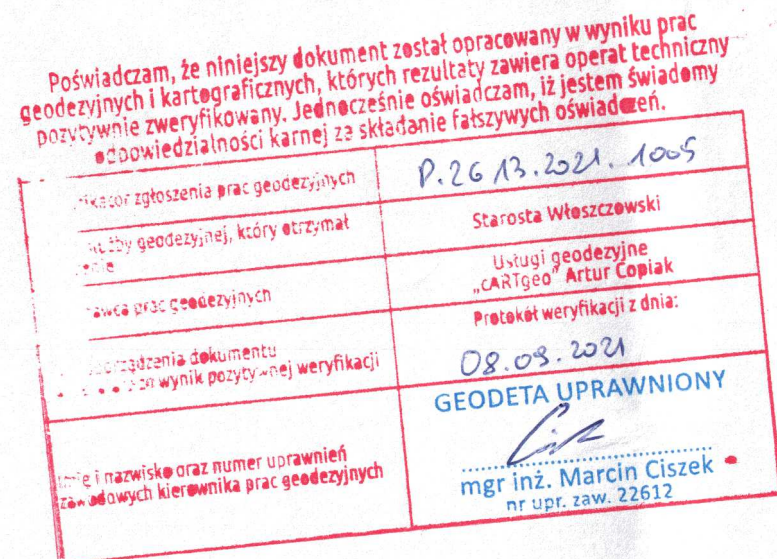 Poświadczam, że niniejszy dokument został opracowany w wyniku prac
geodezyjnych i kartograficznych, których rezultaty zawiera operat techniczny
pozytywnie zweryfikowany. Jednocześnie oświadczam, iż jestem świadomy
odpowiedzialności karnej za składanie fałszywych oświadczeń.
zgłoszenia prac geodezyjnych
P.2613.2021.1005
geodezyjnej, który otrzymał
Starosta Włoszczowski
prac geodezyjnych
Usługi geodezyjne
„cARTgeo" Artur Copiak
dokumentu
wynik pozytywnej weryfikacji
Protokół weryfikacji z dnia:
08.09.2021
i nazwisko oraz numer uprawnień
zawodowych kierownika prac geodezyjnych
GEODETA UPRAWNIONY
mgr inż. Marcin Ciszek
nr upr. zaw. 22612